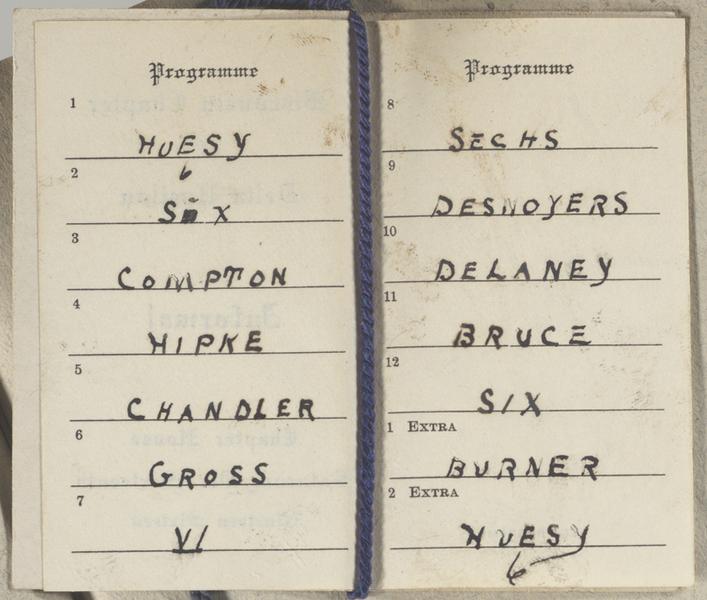 Programme
1
HUESY
2
6
SIX
3
COMPTON
4
HIPKE
5
CHANDLER
6
GROSS
7
VI
Programme
8
SECHS
9
DESNOYERS
10
DELANEY
11
BRUCE
12
SIX
1 EXTRA
BURNER
2 EXTRA
HUESY
6